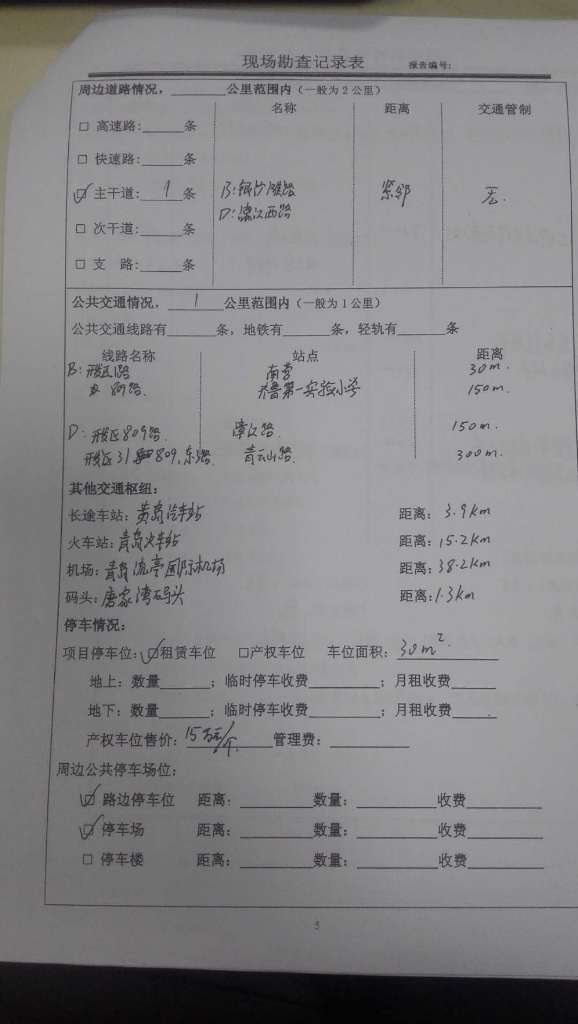 现场勘查记录表 报告编号:
周边道路情况，______公里范围内（一般为2公里）
名称 距离 交通管制
□ 高速路:______条
□ 快速路:______条
☑ 主干道: 1 条 B: 路 紧邻 无.
D: 漓江西路
□ 次干道:______条
□ 支 路:______条
公共交通情况， 1 公里范围内（一般为1公里）
公共交通线路有______条，地铁有______条，轻轨有______条
线路名称 站点 距离
B: 开发区1路 南营 30m.
路. 第一实验小学 150m.
D: 开发区809路. 漓江路. 150m.
开发区31 809、东 路. 青云山路. 300m.
其他交通枢纽:
长途车站: 黄岛汽车站 距离: 3.9km
火车站: 青岛火车站 距离: 15.2km
机场: 青岛流亭国际机场 距离: 38.2km
码头: 唐家湾码头 距离: 1.3km
停车情况:
项目停车位: ☑租赁车位 □产权车位 车位面积: 30m².
地上: 数量______; 临时停车收费______; 月租收费______
地下: 数量______; 临时停车收费______; 月租收费______
产权车位售价: 15万元/个. 管理费: ______
周边公共停车场位:
☑ 路边停车位 距离: ______数量: ______收费______
☑ 停车场 距离: ______数量: ______收费______
□ 停车楼 距离: ______数量: ______收费______
5